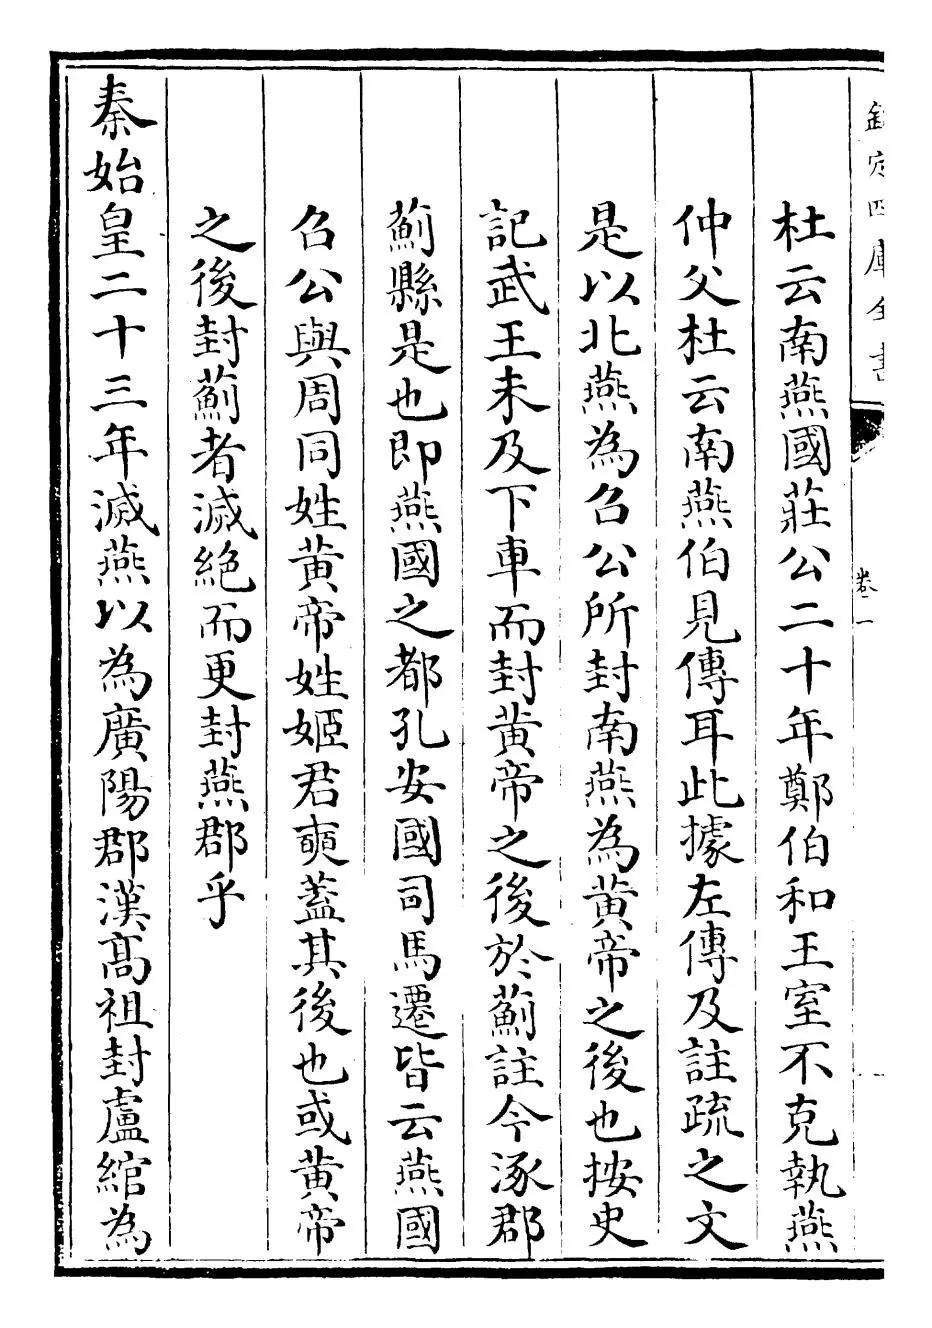 欽定四庫全書
卷一
杜云南燕國莊公二十年鄭伯和王室不克執燕
仲父杜云南燕伯見傳耳此據左傳及註疏之文
是以北燕為召公所封南燕為黄帝之後也按史
記武王未及下車而封黄帝之後於薊註今涿郡
薊縣是也即燕國之都孔安國司馬遷皆云燕國
召公與周同姓黄帝姓姬君奭蓋其後也或黄帝
之後封薊者滅絶而更封燕郡乎
秦始皇二十三年滅燕以為廣陽郡漢髙祖封盧綰為